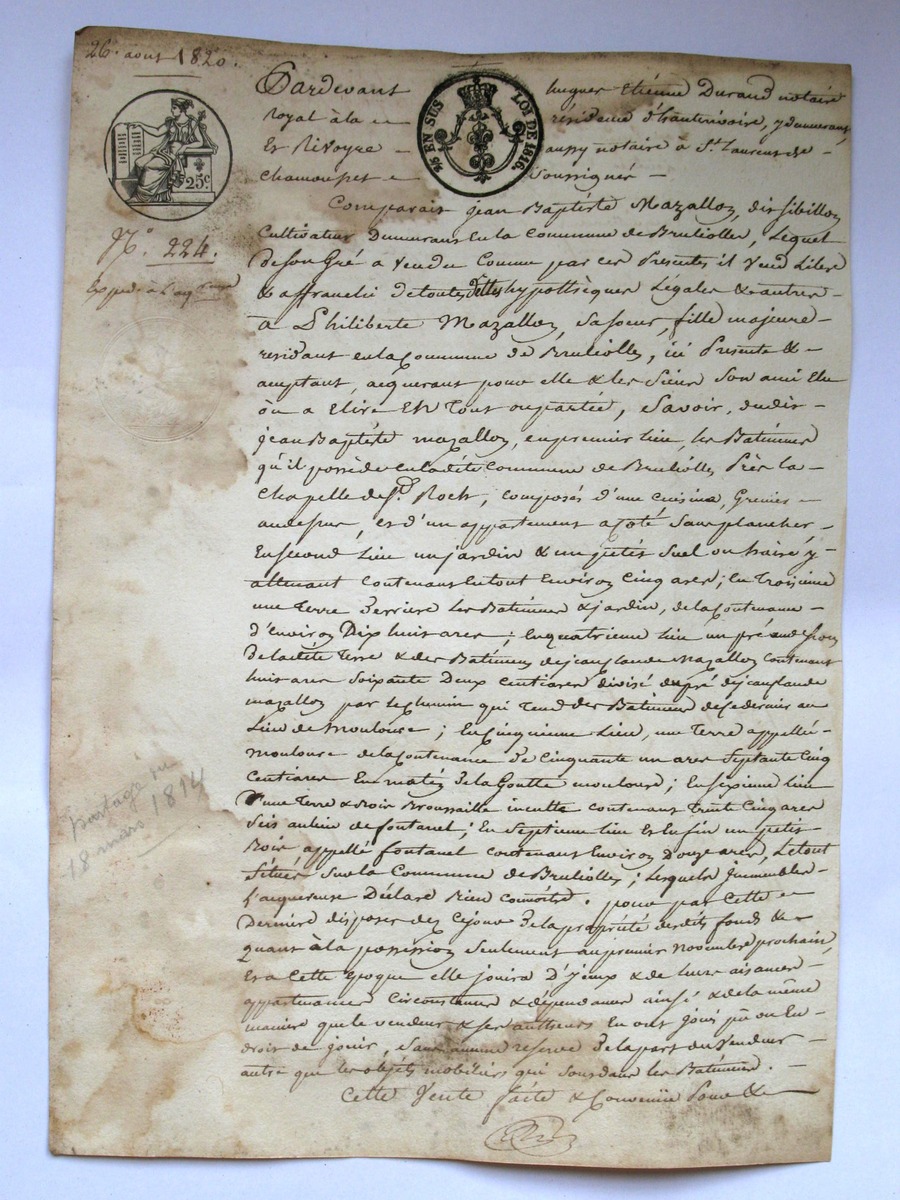 26. aout 1820.
Pardevant hugues Etiénne Durand notaire
royal à la résidence d'hauterivoire, y demeurant,
Et Rivoyre aussy notaire à St. Laurent de
Chamousset soussignés
25 EN SUS LOI DE 1816.
25c.
N.° 224.
Comparait jean Baptiste Mazallon, dit sibillon
Cultivateur Demeurant En la Commune de Bruliolles, Lequel
de son Gré a vendu Comme par ces Présentes il Vend Libre
& affranchi de toutes dettes hypothèques Légales & autres
à Philiberte Mazallon, sa soeur, fille majeure
residant en la Commune de Brulliolles, ici Présente &
acceptant, acquerant pour elle & les siens son ami Elu
ou a Elire En Tout ou partie, Savoir, dudit
jean Baptiste mazallon, en premier Lieu, les Batimens
qu'il possède en ladite Commune de Brulliolles Près la
Chapelle de St. Roch, composés d'une cuisine, Grenier
au dessus, et d'un appartement a côté sans plancher
En second Lieu un jardin & un petit suel ou haire y
attenant contenant en tout Environ Cinq ares; En Troisieme
une Terre derriere les Batimens & jardin, de la Contenance
d'Environ Dix huit ares; En quatrieme Lieu un pré
de ladite Terre & des Batimens de jean claude Mazallon contenant
huit ares soixante Deux centiares divisé du pré de jean claude
mazallon par le chemin qui Tend des Batimens de ce dernier au
Lieu de Moulouse; En Cinquieme Lieu, une Terre appellée
Moulouse de la Contenance de Cinquante un ares septante Cinq
Centiares En matéz de la Goutte moulouse; En sixieme Lieu
d'une Terre & Bois Broussaille inculte contenant Trente Cinq ares
sis au lieu de fontanel; En septieme lieu Et Enfin un petit
Bois appellé fontanel contenant Environ Douze ares, Le tout
situés sur la Commune de Brulliolles; Lesquels Immeubles
l'acquereuse Déclare Bien Connoitre. pour par Cette
Derniere disposer dez Cejour de la propriété desdits fonds &
quant à la possession seulement au premier novembre prochain,
Et a Cette Epoque elle jouira D'yceux & de leurs aisances
appartenances Circonstances & dépendances ainsi & de la même
maniere que le vendeur & ses autheurs En ont joui pû ou En
droit de jouir, sans aucune reserve de la part du Vendeur
autre que les objets mobiliers qui sont dans les Batimens.
Cette Vente faite & Convenüe Pour &
partage du
18 mars 1814